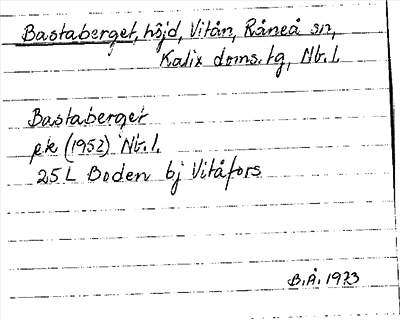 Bastaberget, höjd, Vitån, Råneå sn,
Kalix doms.tg, Nb.l.
Bastaberget
ek (1952) Nb.l.
25 L Boden bj Vitåfors
B.Å. 1973